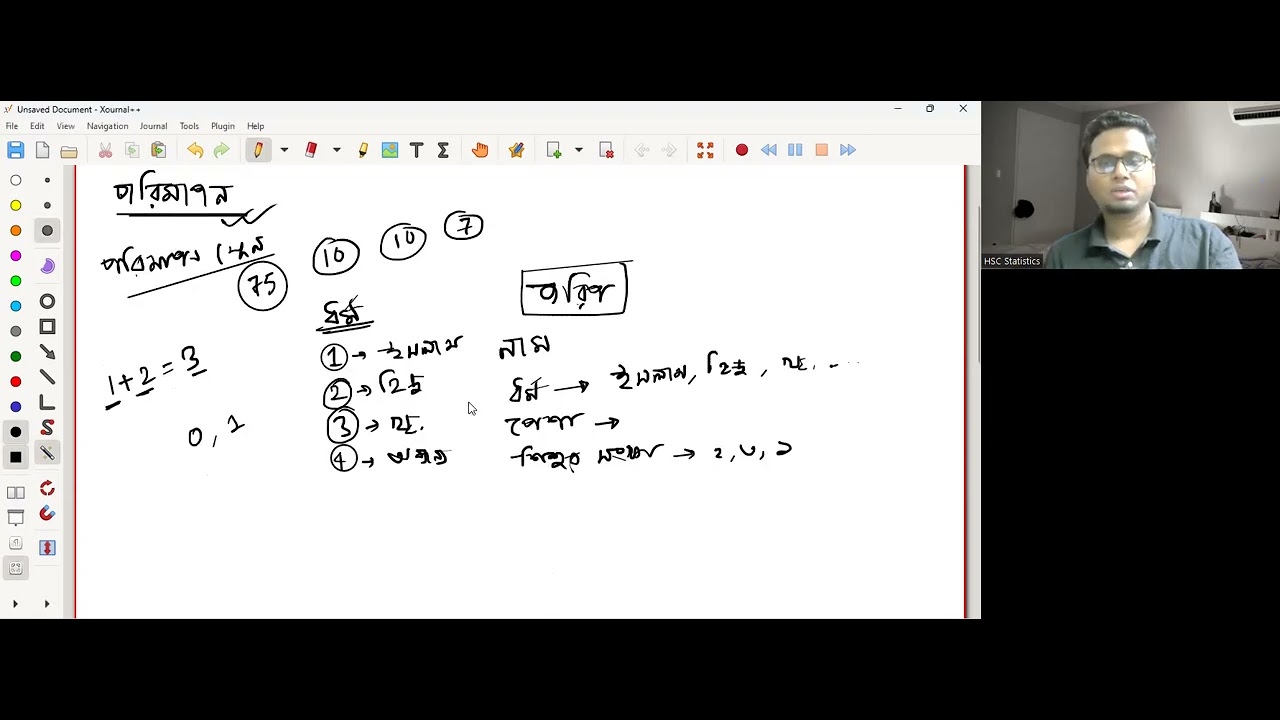 Unsaved Document - Xournal++
File Edit View Navigation Journal Tools Plugin Help
HSC Statistics
পরিমাপন
পরিমাপন স্কেল
75 10 10 7
জরিপ
ধর্ম
1 → ইসলাম
2 → হিন্দু
3 → খ্রি.
4 → অন্যান্য
নাম
ধর্ম → ইসলাম, হিন্দু, খ্রি. ...
পেশা →
শিশুর সংখ্যা → ২, ৩, ১
1 + 2 = 3
0, 1